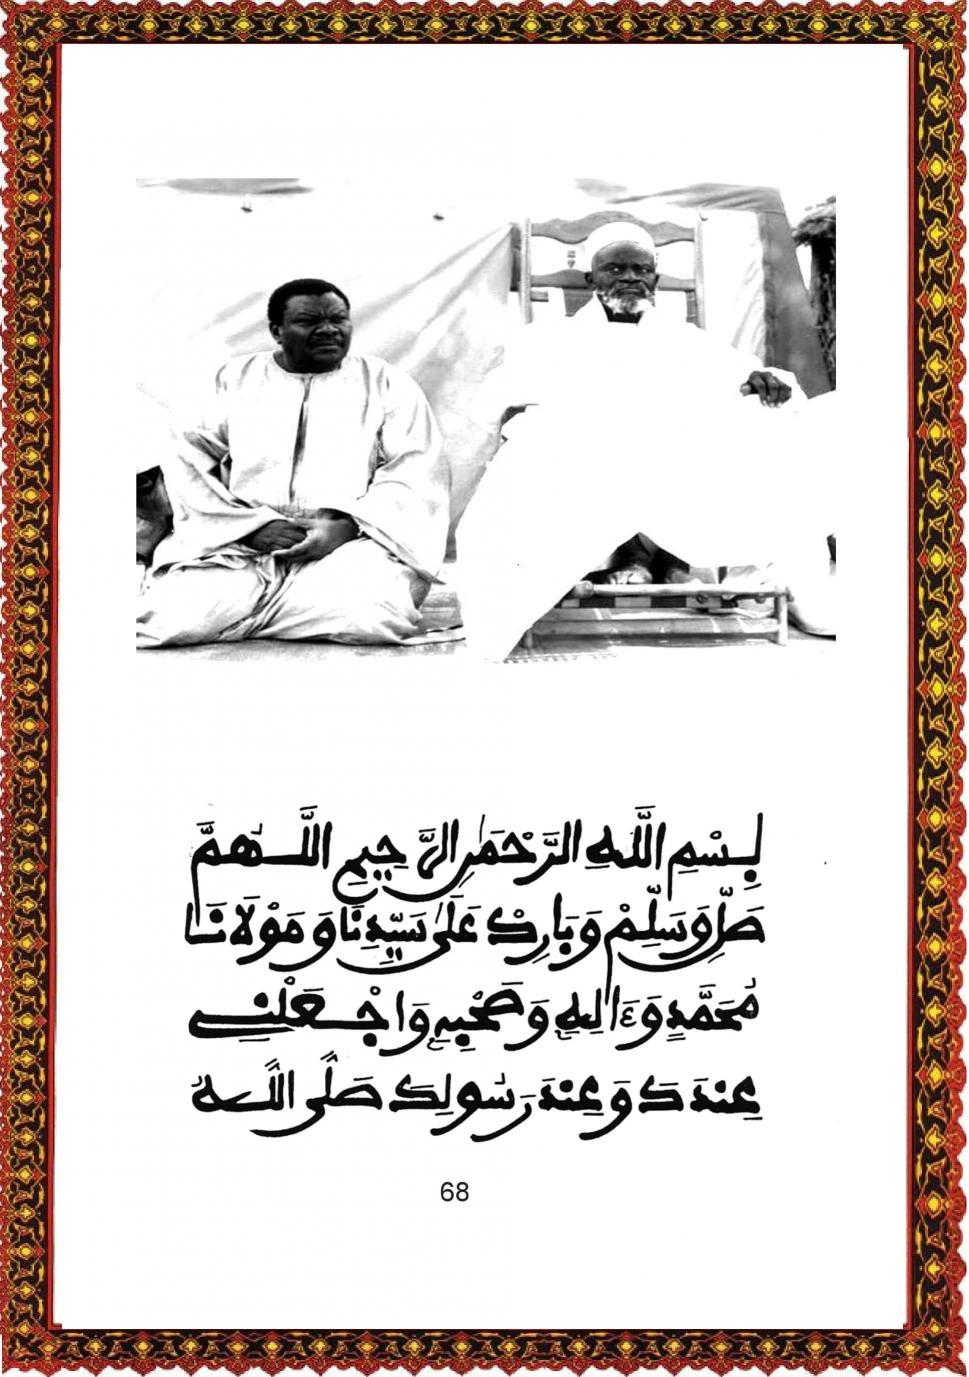 بِسْمِ اللَّهِ الرَّحْمَٰنِ الرَّحِيمِ اللَّـٰهُمَّ
صَلِّ وَسَلِّمْ وَبَارِكْ عَلَىٰ سَيِّدِنَا وَمَوْلَانَا
مُحَمَّدٍ وَءَالِهِ وَصَحْبِهِ وَاجْعَلْنِي
عِندَكَ وَعِندَ رَسُولِكَ صَلَّى اللَّهُ
68